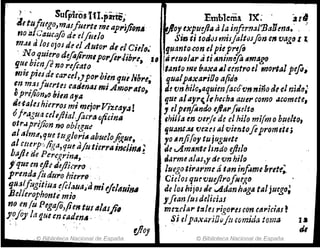 Suspiros III. parte,
de tu fuego, mas fuerte me aprisiona
no al Caucaso de el suelo
mas á los ojos de el Autor de el Cielo.
No quiero desasirme por ser libre,
que bien sè no rescato
mis pies de carcel, y por bien que libre,
en mas fuertes cadenas mi Amor ato,
ò prision, ò bien aya
de tales hierros mi mejor Vizcaya!
ò fragua celestial sacra oficina
otra prision no obligue
al alma, que tu gloria abuelo sigue,
al cuerpo siga, que à su tierra inclina;
baste de Peregrina,
y que en este destierro
prenda su duro hierro
qual fugitiva esclava, à mi esclavina
Bellerophonte mio
no en su Pegaso, si en tus alas fio
yo soy la que en cadena
estoy
Emblema IX. 219
estoy expuesta à la infernal Ballena.
Sin ti todos mis saltos son en vago 2 2
quanto con el pie preso
à revolar à ti animosa amago
tanto me baxa al centro el mortal peso,
qual paxarillo asido
de vn hilo, quien sacò vn niño de el nido,
que al ayre le hecha auer como acomete,
y el pensando estar suelto
chilla en verse de el hilo mismo buelto,
quantas vezes al viento se promete;
yo ansi soy tu juguete
de Amante lindo estilo
darme alas, y de vn hilo
luego tirarme à tan infame brete;
Cielos que vuestro fuego
de los hijos de Adan haga tal juego;
y sean sus delicias
mezclar tales rigores con caricias!
Si el paxarillo su comida toma 2 3
de
© Biblioteca Nacional de España
© Biblioteca Nacional de España